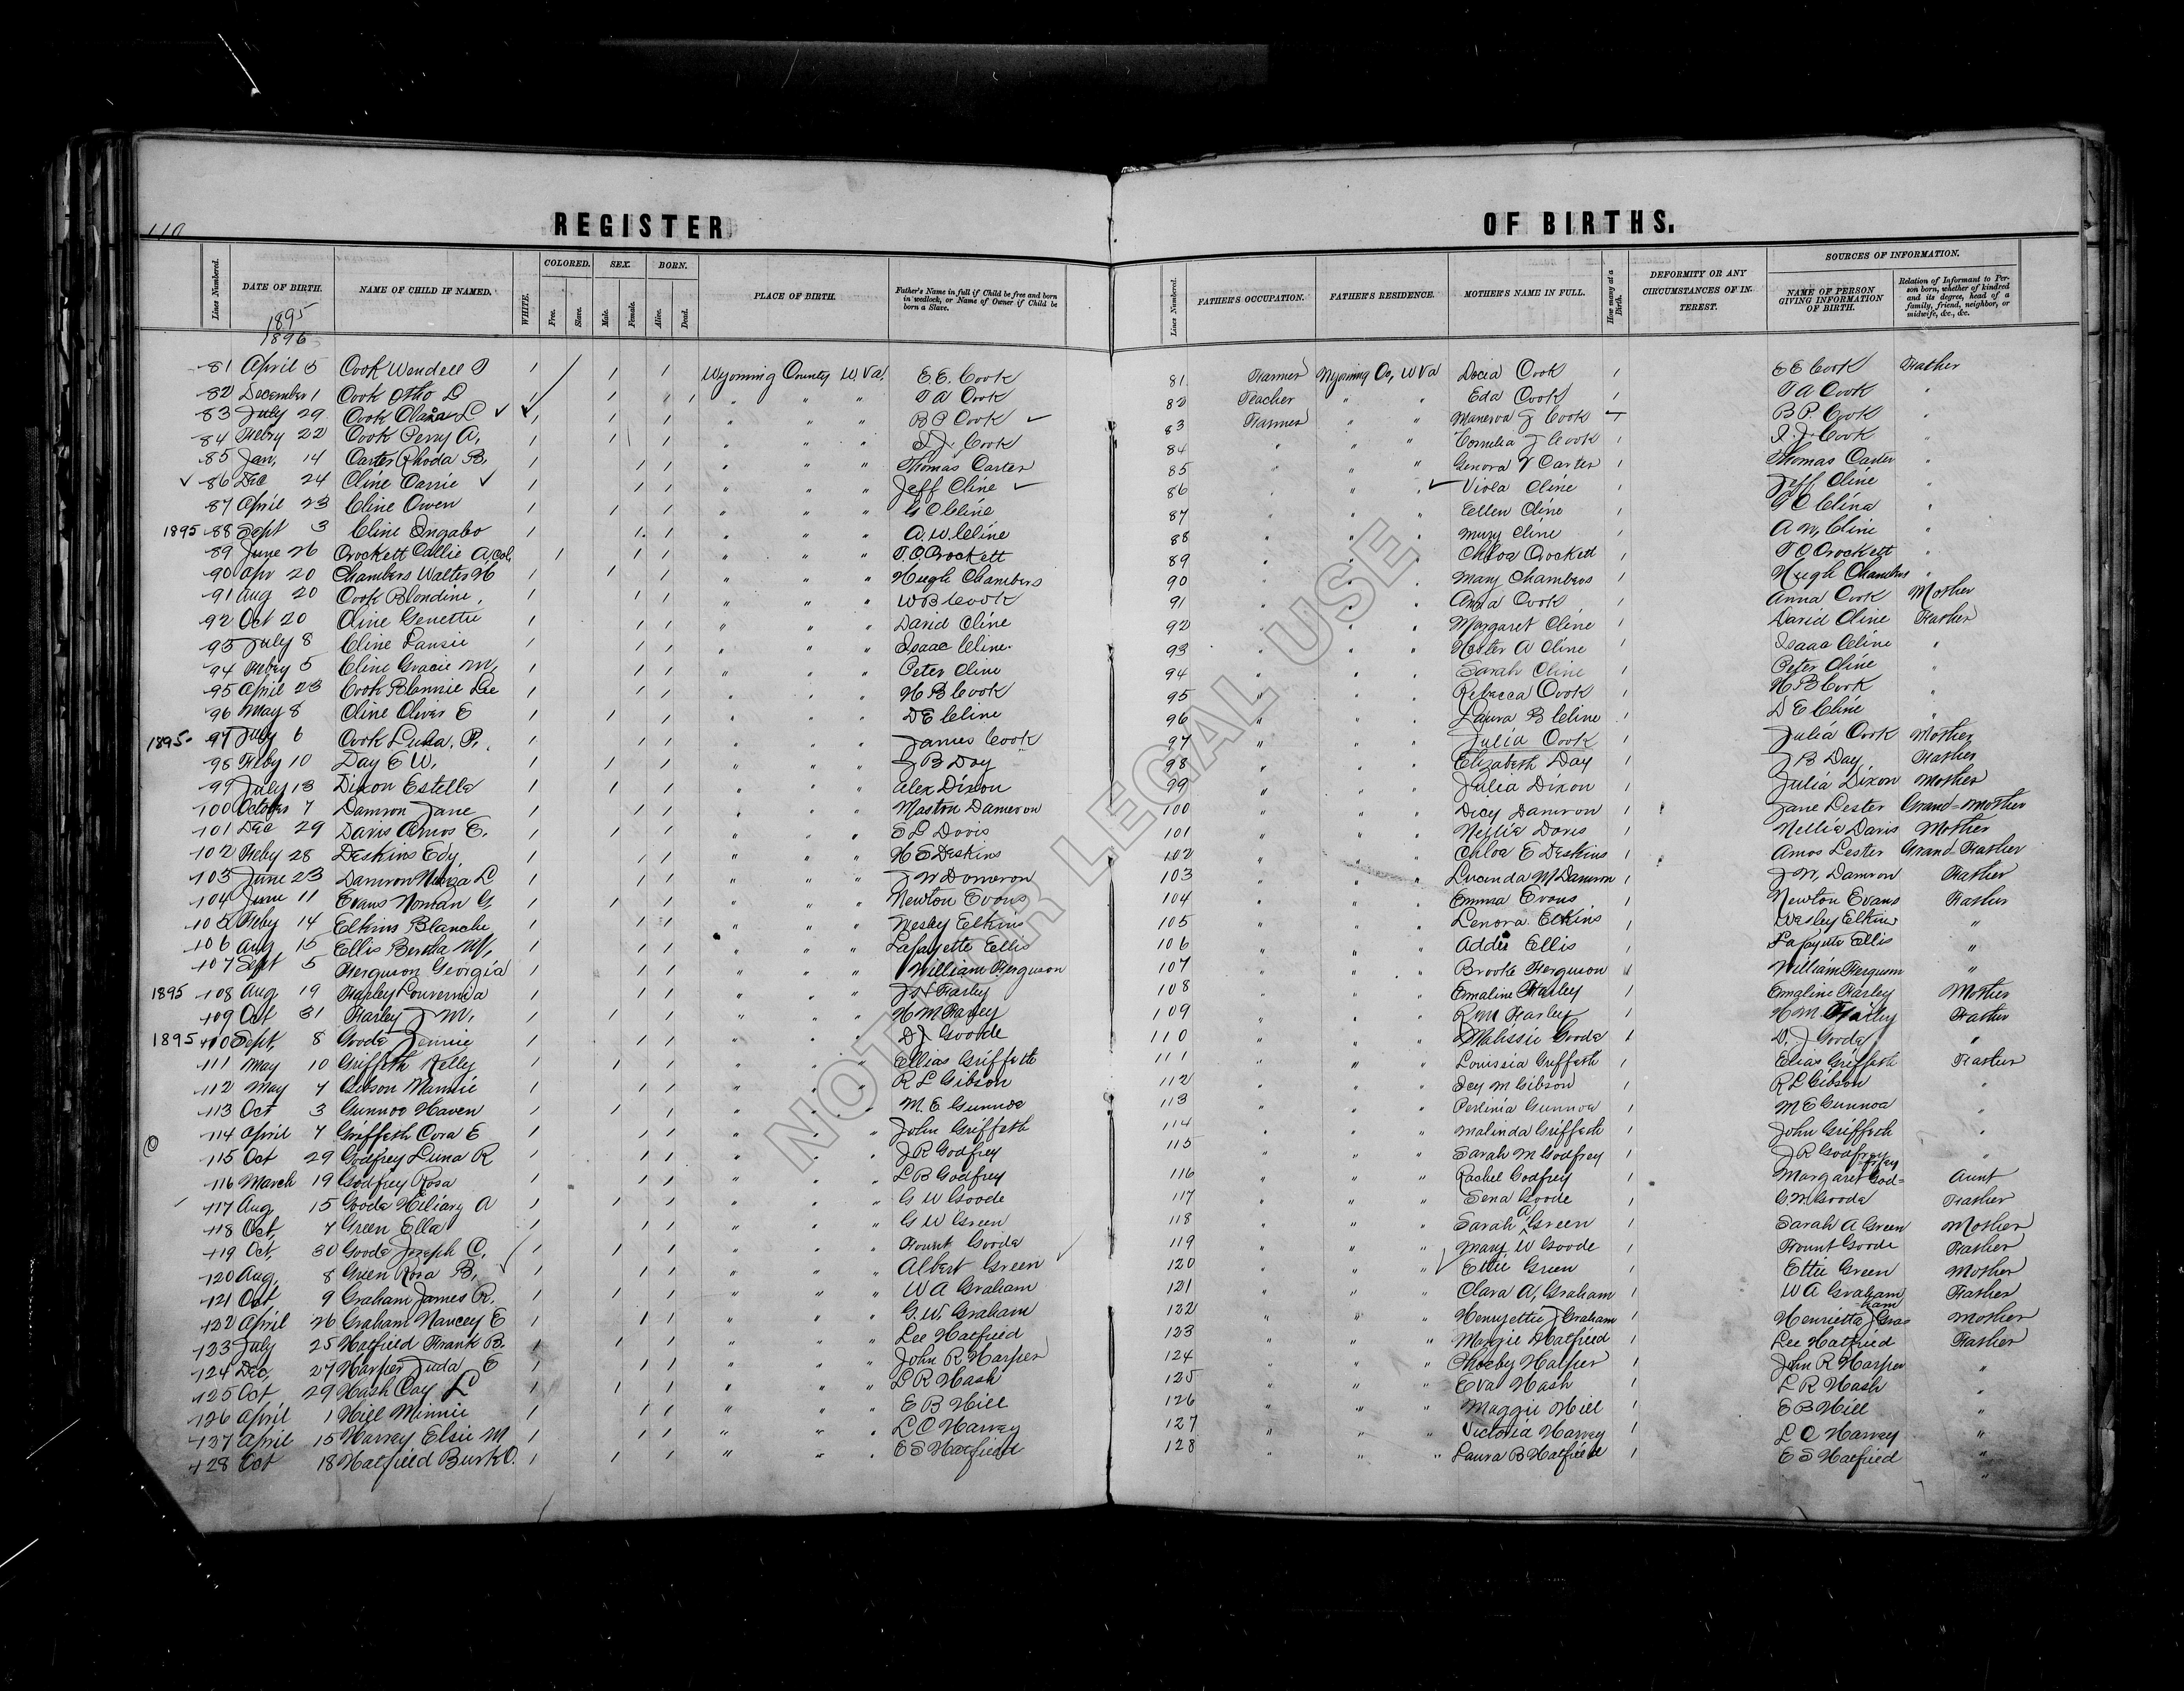 110
REGISTER OF BIRTHS.
Lines Numbered. DATE OF BIRTH. NAME OF CHILD IF NAMED. WHITE. COLORED. Free. Slave. SEX. Male. Female. BORN. Alive. Dead. PLACE OF BIRTH. Father's Name in full if Child be free and born in wedlock, or Name of Owner if Child be born a Slave. Lines Numbered. FATHER'S OCCUPATION. FATHER'S RESIDENCE. MOTHER'S NAME IN FULL. How many at a Birth. DEFORMITY OR ANY CIRCUMSTANCES OF INTEREST. SOURCES OF INFORMATION. NAME OF PERSON GIVING INFORMATION OF BIRTH. Relation of Informant to Person born, whether of kindred and its degree, head of a family, friend, neighbor, or midwife, &c., &c.
1895
1896
81 April 5 Cook Wendell P 1 1 1 Wyoming County W Va. E E. Cook 81 Farmer Wyoming Co, W Va Docia Cook 1 E E Cook Father
82 December 1 Cook Otho L 1 1 1 " " " T A Cook 82 Teacher " " Eda Cook 1 T A Cook "
83 July 29 Cook Clara L ✓ 1 1 1 " " " B P Cook ✓ 83 Farmer " " Manerva J Cook B P. Cook "
84 Feby 22 Cook Perry A, 1 1 1 " " " I. J. Cook 84 " " " Cornelia J Cook 1 I. J. Cook "
85 Jan, 14 Carter Rhoda B, 1 1 1 " " " Thomas Carter 85 " " " Genora V Carter 1 Thomas Carter "
✓ 86 Dec 24 Cline Carrie ✓ 1 1 1 " " " Jeff Cline ✓ 86 " " " ✓ Viola Cline 1 Jeff Cline "
87 April 23 Cline Owen 1 1 1 " " " G C Cline 87 " " " Ellen Cline 1 G C Cline "
1895 88 Sept 3 Cline Ingabo 1 1 1 " " " A. W. Cline 88 " " " Mary Cline 1 A W, Cline "
89 June 26 Crockett Callie A, Col, 1 1 1 " " " T. O Crockett 89 " " " Chloa Crockett 1 T O Crockett "
90 Apr 20 Chambers Walter H 1 1 1 " " " Hugh Chambers 90 " " " Mary Chambers 1 Hugh Chambers "
91 Aug 20 Cook Blondine, 1 1 1 " " " W B Cook 91 " " " Anna Cook 1 Anna Cook Mother
92 Oct 20 Cline Genettie 1 1 1 " " " David Cline 92 " " " Margaret Cline 1 David Cline Father
93 July 8 Cline Lansie 1 1 1 " " " Isaac Cline 93 " " " Hester A Cline 1 Isaac Cline "
94 Feby 5 Cline Gracie M, 1 1 1 " " " Peter Cline 94 " " " Sarah Cline 1 Peter Cline "
95 April 23 Cook Blannie Lee 1 1 1 " " " H B Cook 95 " " " Rebecca Cook 1 H B Cook "
96 May 8 Cline Oliver E 1 1 1 " " " D E Cline 96 " " " Laura B Cline 1 D E Cline "
1895 97 July 6 Cook Luna, P. 1 1 1 " " " James Cook 97 " " " Julia Cook 1 Julia Cook Mother
98 Feby 10 Day E W, 1 1 1 " " " J B Day 98 " " " Elizabeth Day 1 J B Day Father
99 July 13 Dixon Estella 1 1 1 " " " Alex Dixon 99 " " " Julia Dixon 1 Julia Dixon Mother
100 October 7 Damron Jane 1 1 1 " " " Maston Dameron 100 " " " Dicy Damron 1 Jane Lester Grand=Mother
101 Dec 29 Davis Amos E. 1 1 1 " " " E L Davis 101 " " " Nellie Davis 1 Nellie Davis Mother
102 Feby 28 Deskins Edy, 1 1 1 " " " H S Deskins 102 " " " Chloa E Deskins 1 Amos Lester Grand-Father
103 June 23 Damron L 1 1 1 " " " J W Domeron 103 " " " Lucinda M Damron 1 J W, Damron Father
104 June 11 Evans Norman G 1 1 1 " " " Newton Evans 104 " " " Emma Evans 1 Newton Evans Father
105 Feby 14 Elkins Blanche 1 1 1 " " " Wesley Elkins 105 " " " Lenora Elkins 1 Wesley Elkins "
106 Aug 15 Ellis Bertha M, 1 1 1 " " " Lafayette Ellis 106 " " " Addie Ellis 1 Lafayette Ellis "
107 Sept 5 Ferguson Georgia 1 1 1 " " " William Ferguson 107 " " " Brooke Ferguson 1 William Ferguson "
1895 108 Aug 19 Farley Louvernia 1 1 1 " " " J H Farley 108 " " " Emaline Farley 1 Emaline Farley Mother
109 Oct 31 Farley J M, 1 1 1 " " " H M Farley 109 " " " R M Farley 1 H M. Farley Father
1895 110 Sept, 8 Goode Jennie 1 1 1 " " " D J Goode 110 " " " Malissie Goode 1 D. J Goode "
111 May 10 Griffeth Kelly 1 1 1 " " " Ellias Griffeth 111 " " " Louissia Griffeth 1 Elias Griffeth Father
112 May 7 Gibson Minnie 1 1 1 " " " R L Gibson 112 " " " Icy M Gibson 1 R L Gibson "
113 Oct 3 Gunnoo Haven 1 1 1 " " " M. E Gunnoe 113 " " " Perlinia Gunnoe 1 M E Gunnoa "
114 April 7 Griffeth Cora E 1 1 1 " " " John Griffeth 114 " " " Malinda Griffeth 1 John Griffeth "
115 Oct 29 Godfrey Luna R 1 1 1 " " " J R Godfrey 115 " " " Sarah M Godfrey 1 J R Godfrey "
116 March 19 Godfrey Rosa 1 1 1 " " " L B Godfrey 116 " " " Rachel Godfrey 1 Margaret God=frey Aunt
117 Aug 15 Goode Hiliary A 1 1 1 " " " G W Goode 117 " " " Sena Goode 1 G. W. Goode Father
118 Oct, 7 Green Ella 1 1 1 " " " G W Green 118 " " " Sarah A Green 1 Sarah A Green Mother
119 Oct, 30 Goode Joseph C, 1 1 1 " " " Fount Goode 119 " " " Mary W Goode 1 Fount Goode Father
120 Aug, 8 Green Rosa B, ✓ 1 1 1 " " " Albert Green ✓ 120 " " " ✓ Ettie Green 1 Ettie Green Mother
121 Oct 9 Graham James R. 1 1 1 " " " W A Graham 121 " " " Clara A, Graham 1 W A Graham Father
122 April 26 Graham Nancey E 1 1 1 " " " G. W. Graham 122 " " " Henryettie J Graham 1 Henrietta J Gra=ham Mother
123 July 25 Hatfield Frank B. 1 1 1 " " " Lee Hatfield 123 " " " Maggie D Hatfield 1 Lee Hatfield Father
124 Dec, 27 Harper Juda E 1 1 1 " " " John R Harper 124 " " " Phoeby Harper 1 John R Harper "
125 Oct 29 Hash Cay L 1 1 1 " " " L R Hash 125 " " " Eva Hash 1 L R Hash "
126 April 1 Hill Minnie 1 1 1 " " " E B Hill 126 " " " Maggie Hill 1 E B Hill "
127 April 15 Harvey Elsie M 1 1 1 " " " L C Harvey 127 " " " Victoria Harvey 1 L C Harvey "
128 Oct 18 Hatfield Burk O. 1 1 1 " " " E S Hatfield 128 " " " Laura B Hatfield 1 E S Hatfield "
NOT FOR LEGAL USE